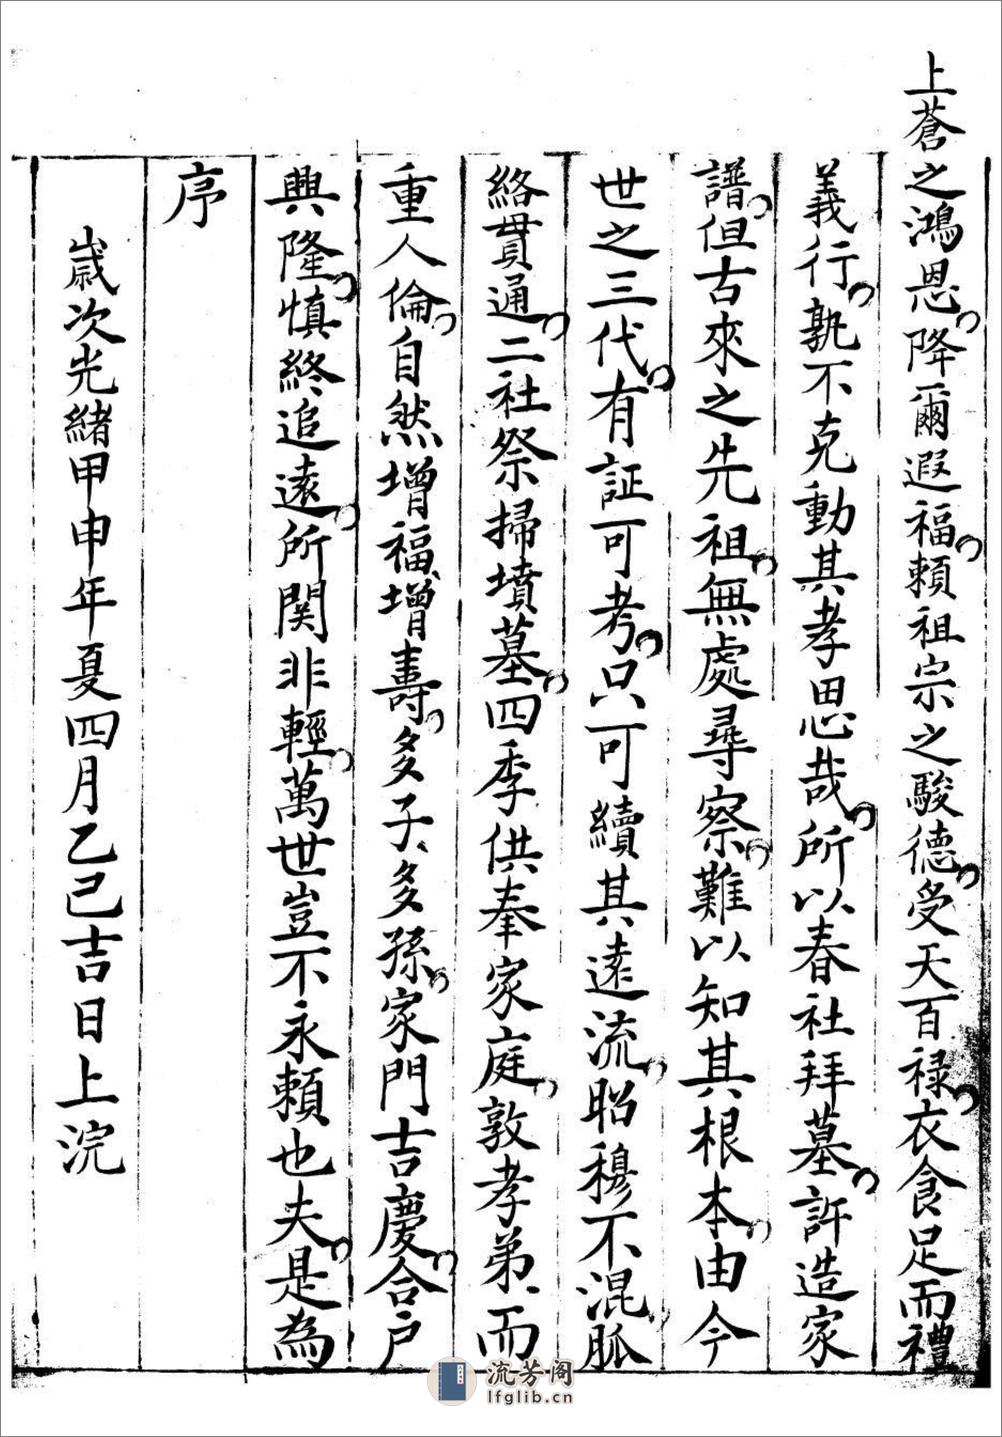 上蒼之鴻恩降爾遐福賴祖宗之駿德受天百禄衣食足而禮
義行孰不克動其孝思哉所以春社拜墓許造家
譜但古來之先祖無處尋察難以知其根本由今
世之三代有証可考只可續其遠流昭穆不混脈
絡貫通二社祭掃墳墓四季供奉家庭敦孝弟、而
重人倫自然增福、增壽多子、多孫家門吉慶合戶
興隆慎終追遠所関非輕萬世豈不永賴也夫是為
序
歲次光緒甲申年夏四月乙己吉日上浣
流芳阁
lfglib.cn